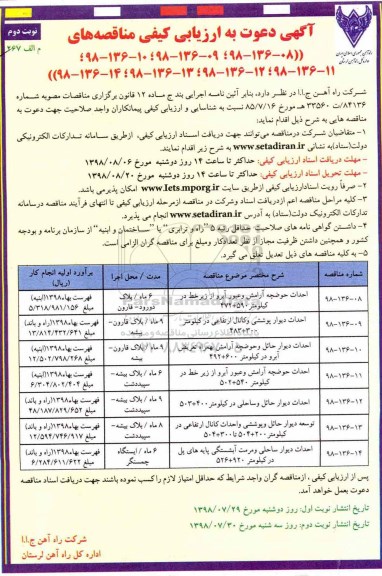 آگهی دعوت به ارزیابی کیفی مناقصه‌های
نوبت دوم
م الف ۲۶۷
((۹۸-۱۳۶-۰۸؛ ۹۸-۱۳۶-۰۹؛ ۹۸-۱۳۶-۱۰؛
۹۸-۱۳۶-۱۱؛ ۹۸-۱۳۶-۱۲؛ ۹۸-۱۳۶-۱۳؛ ۹۸-۱۳۶-۱۴))
شرکت راه آهن ج.ا.ا در نظر دارد، بنابر آئین نامه اجرایی بند ج ماده ۱۲ قانون برگزاری مناقصات مصوبه شماره
۸۴۱۳۶/ت ۳۳۵۶۰ هـ مورخ ۸۵/۷/۱۶ نسبت به شناسایی و ارزیابی کیفی پیمانکاران واجد صلاحیت جهت دعوت به
مناقصه هایی به شرح ذیل اقدام نماید:
۱- متقاضیان شرکت در مناقصه می‌توانند جهت دریافت اسناد ارزیابی کیفی، ازطریق سامانه تدارکات الکترونیکی
دولت(ستاد)به نشانی www.setadiran.ir به شرح زیر اقدام نمایند.
- مهلت دریافت اسناد ارزیابی کیفی: حداکثر تا ساعت ۱۴ روز دوشنبه مورخ ۱۳۹۸/۰۸/۰۶
- مهلت تحویل اسناد ارزیابی کیفی: حداکثر تا ساعت ۱۴ روز دوشنبه مورخ ۱۳۹۸/۰۸/۲۰
۲- صرفاً رویت اسنادارزیابی کیفی ازطریق سایت www.Iets.mporg.ir امکان پذیرمی باشد.
۳-کلیه مراحل مناقصه اعم ازدریافت اسناد وشرکت در مناقصه ازمرحله ارزیابی کیفی تا انتهای فرآیند مناقصه درسامانه
تدارکات الکترونیک دولت(ستاد) به آدرس www.setadiran.ir انجام می پذیرد.
۴- داشتن گواهی نامه های صلاحیت حداقل رتبه ۵ "راه و ترابری" یا "ساختمان و ابنیه" از سازمان برنامه و بودجه
کشور و همچنین داشتن ظرفیت مجاز از نظر تعدادکار ومبلغ برای مناقصه گران الزامی است.
۵- به کلیه مناقصه های ذیل تعدیل تعلق می گیرد.
شماره مناقصه | شرح مختصر موضوع مناقصه | مدت / محل اجرا | برآورد اولیه انجام کار (ریال)
۹۸-۱۳۶-۰۸ | احداث حوضچه آرامش وعبور آبرو از زیر خط در کیلومتر ۵۹۰+۴۴۲ | ۶ ماه / بلاک دورود- قارون | فهرست بهاء۱۳۹۸(ابنیه) مبلغ ۵/۳۱۸/۹۸۱/۱۵۶
۹۸-۱۳۶-۰۹ | احداث دیوار پوششی وکانال ارتفاعی در کیلومتر | ۹ ماه / بلاک قارون- بیشه | فهرست بهاء۱۳۹۸(راه و باند)
۹۸-۱۳۶-۱۰ | احداث دیوار حائل وحوضچه آرامش آبرو در کیلومتر ۶۰۰+۴۹۲ | ۹ ماه / بلاک قارون- بیشه | فهرست بهاء۱۳۹۸(ابنیه) مبلغ ۱۲/۵۰۲/۷۹۸/۲۶۸
۹۸-۱۳۶-۱۱ | احداث حوضچه آرامش وعبور آبرو از زیر خط در کیلومتر ۵۴۰+۵۰۲ | ۶ ماه / بلاک بیشه- سپیددشت | فهرست بهاء۱۳۹۸(ابنیه) مبلغ ۶/۳۰۴/۸۰۲/۴۰۴
۹۸-۱۳۶-۱۲ | احداث دیوار حائل وساحلی در کیلومتر۴۰۰+۵۰۳ | ۹ ماه / بلاک بیشه- سپیددشت | فهرست بهاء۱۳۹۸(راه و باند) مبلغ ۴۸/۱۸۷/۸۲۹/۶۵۲
۹۸-۱۳۶-۱۳ | توسعه دیوار حائل وپوششی واحداث کانال ارتفاعی در کیلومتر ۲۰۰+۵۰۴ تا ۳۰۰+۵۰۴ | ۸ ماه / بلاک بیشه- سپیددشت | فهرست بهاء۱۳۹۸(راه و باند) مبلغ ۱۲/۵۹۴/۷۴۶/۹۱۷
۹۸-۱۳۶-۱۴ | احداث دیوار ساحلی ومرمت آبشستگی پایه های پل در کیلومتر ۹۲۰+۵۲۶ | ۶ ماه / ایستگاه چمسنگر | فهرست بهاء۱۳۹۸(راه و باند) مبلغ ۶/۲۸۴/۶۱۱/۶۲۲
پس از ارزیابی کیفی ، ازمناقصه گران واجد شرایط که حداقل امتیاز لازم را کسب نموده باشند جهت دریافت اسناد مناقصه
دعوت بعمل خواهد آمد.
تاریخ انتشار نوبت اول: روز دوشنبه مورخ ۱۳۹۸/۰۷/۲۹
تاریخ انتشار نوبت دوم: روز سه شنبه مورخ ۱۳۹۸/۰۷/۳۰
شرکت راه آهن ج.ا.ا
اداره کل راه آهن لرستان